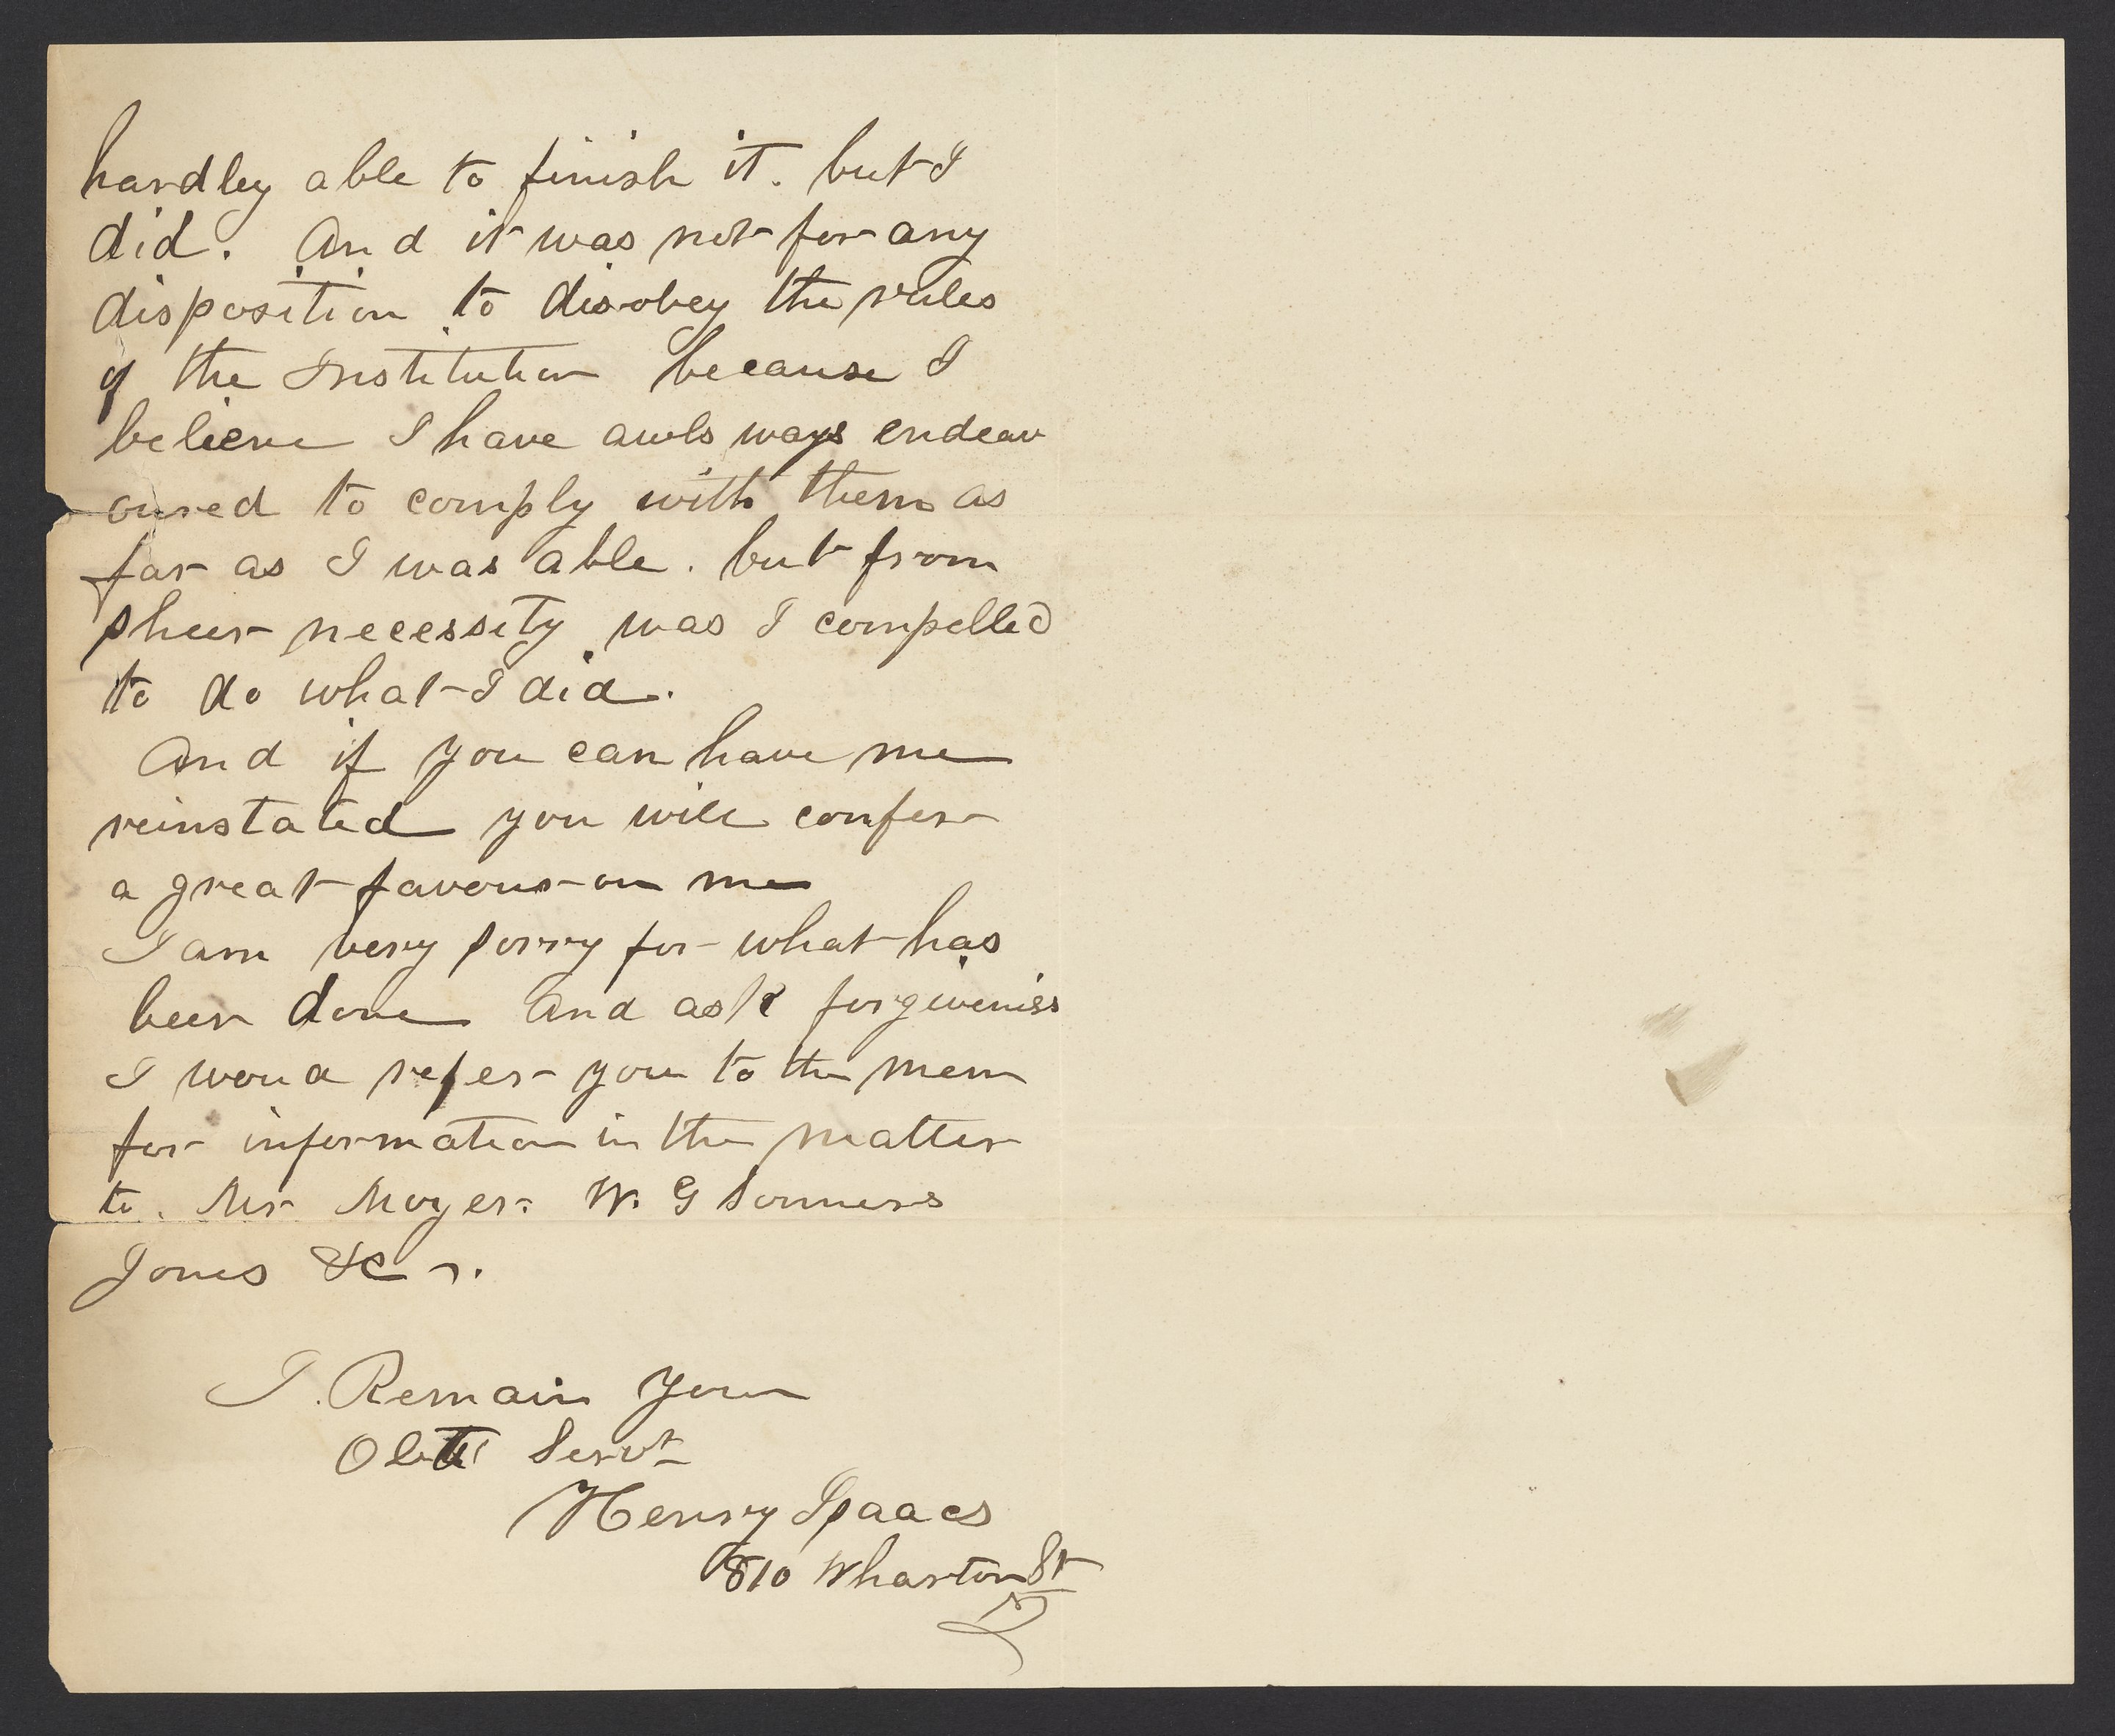 hardley able to finish it. but I
did. And it was not for any
disposition to disobey the rules
of the Institution because I
believe I have awls ways endeav
oured to comply with them as
far as I was able. but from
sheer necessity was I compelled
to do what I did.
And if you can have me
reinstated you will confer
a great favour on me
I am very sorry for what has
been done And ask forgiveniss
I woud refer you to the men
for information in the matter
to. Mr Moyer. W. G Sonners
Jones &c
I. Remain Your
Obt Servt
Henry Isaacs
810 Wharton St